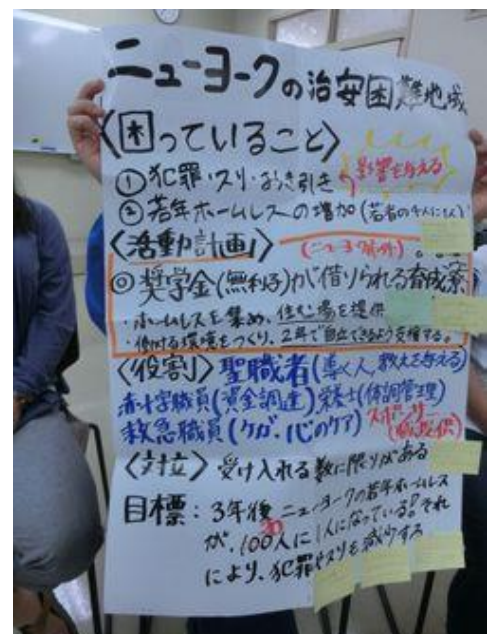 ニューヨークの治安困難地域
〈困っていること〉
①犯罪・スリ・おき引き
影響を与える
②若年ホームレスの増加(若者の4人に1人)
〈活動計画〉
◎奨学金(無利子)が借りられる育成寮
・ホームレスを集め、住む場を提供
・働ける環境をつくり、2年で自立できるよう支援する。
〈役割〉聖職者(導く人、教えを与える)
赤十字職員(資金調達)栄養士(体調管理)
救急職員(ケガ、心のケア)
スポンサー
〈対立〉受け入れる数に限りがある
目標:3年後ニューヨークの若年ホームレス
が、100人に1人になっている!それ
により、犯罪やスリも減少する